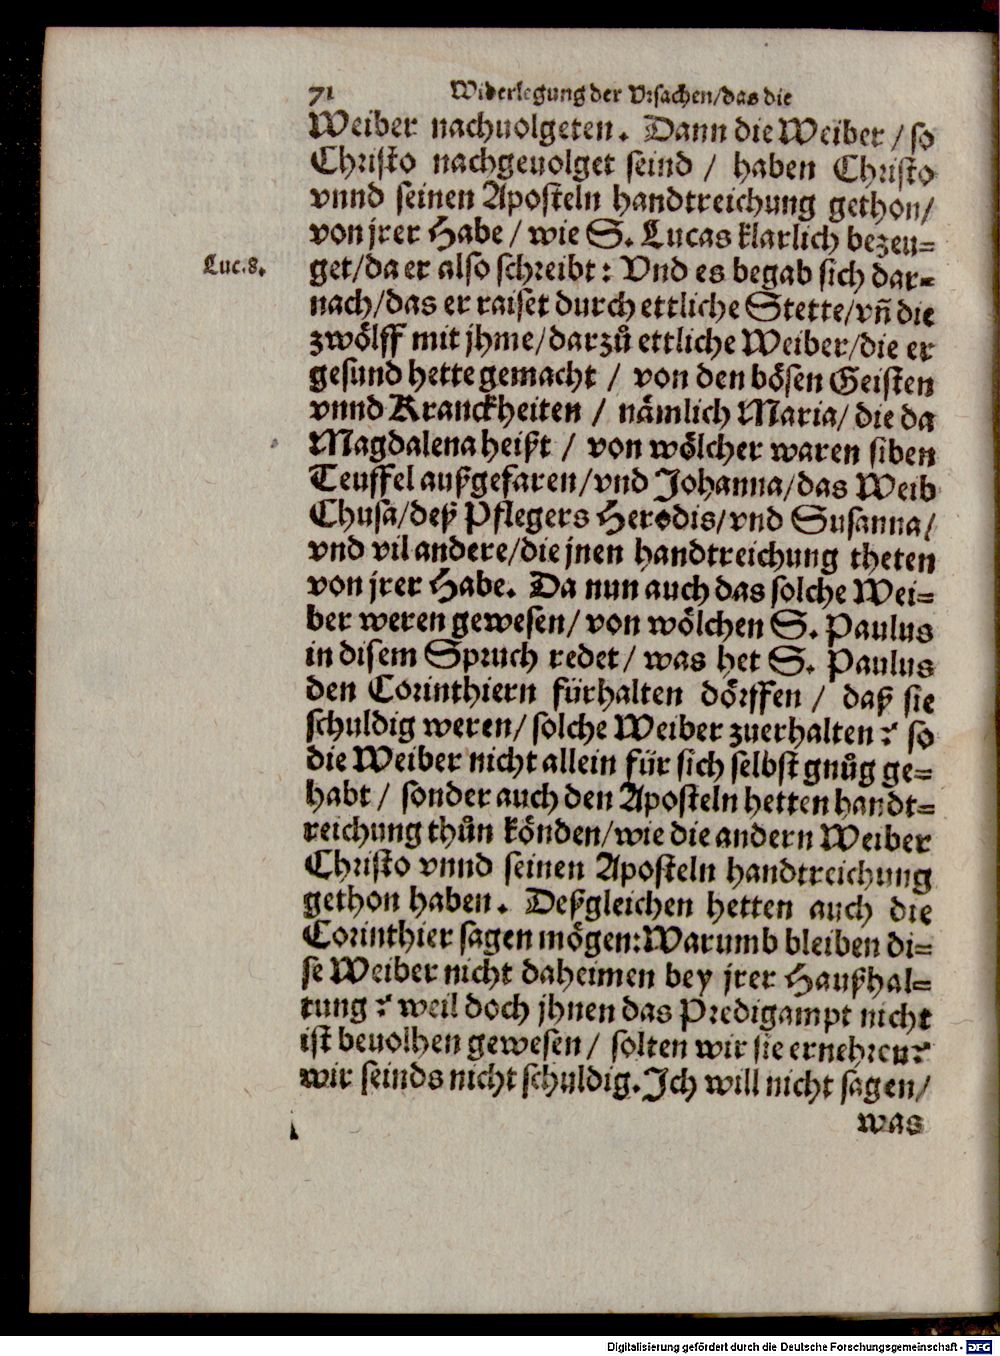 71 Widerlegung der Vrsachen/das die
Weiber nachuolgeten. Dann die Weiber / so
Christo nachgeuolget seind / haben Christo
vnnd seinen Aposteln handtreichung gethon/
von jrer Habe / wie S. Lucas klarlich bezeu=
Luc.8.
get/da er also schreibt: Vnd es begab sich dar=
nach/das er raiset durch ettliche Stette/vñ die
zwölff mit jhme/darzů ettliche Weiber/die er
gesund hette gemacht / von den bösen Geisten
vnnd Kranckheiten / nämlich Maria/ die da
Magdalena heißt / von wölcher waren siben
Teuffel außgefaren/vnd Johanna/das Weib
Chusa/deß Pflegers Herodis/vnd Susanna/
vnd vil andere/die jnen handtreichung theten
von jrer Habe. Da nun auch das solche Wei=
ber weren gewesen/ von wölchen S. Paulus
in disem Spruch redet/ was het S. Paulus
den Corinthiern fürhalten dörffen / daß sie
schuldig weren/ solche Weiber zuerhalten? so
die Weiber nicht allein für sich selbst gnůg ge=
habt / sonder auch den Aposteln hetten handt=
reichung thůn könden/wie die andern Weiber
Christo vnnd seinen Aposteln handtreichung
gethon haben. Deßgleichen hetten auch die
Corinthier sagen mögen:Warumb bleiben di=
se Weiber nicht daheimen bey jrer Haußhal=
tung? weil doch jhnen das Predigampt nicht
ist beuolhen gewesen/ solten wir sie ernehren?
wir seinds nicht schuldig. Ich will nicht sagen/
was
Digitalisierung gefördert durch die Deutsche Forschungsgemeinschaft - DFG